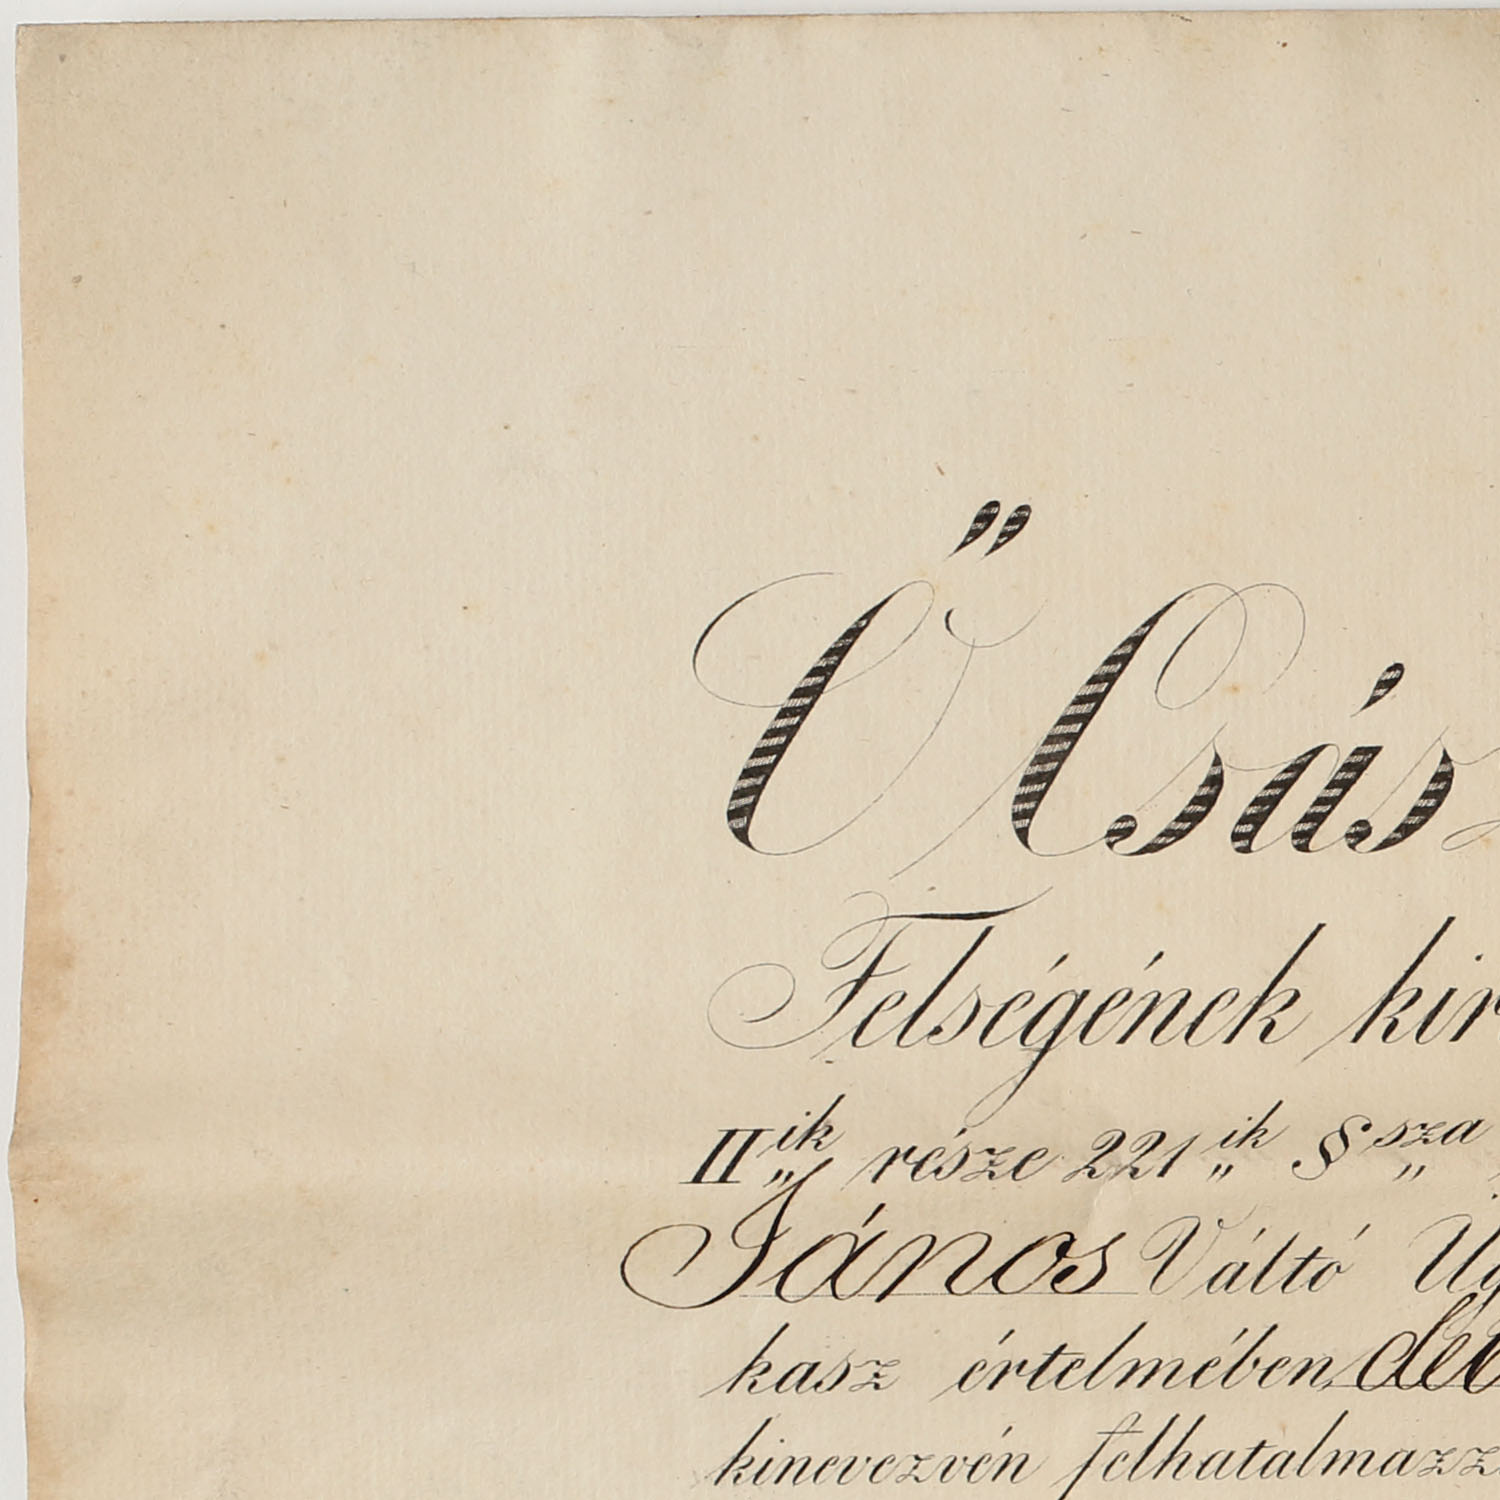 Ő Csás
Felségének kir
II ik része 221 ik § sza
János Váltó Üg
kasz értelmében
kinevezvén felhatalmazz